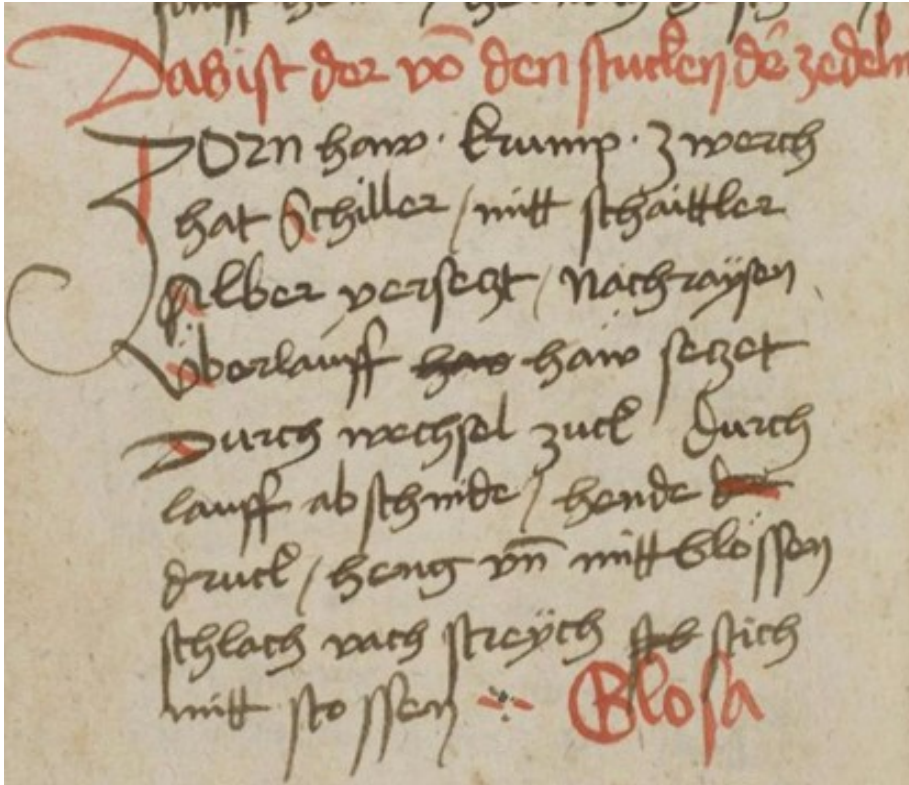 Das ist der võ den stucken dē zedeln
Zorn haw · krump · zwerch
hat Schiller / mitt schaittler
alber versetzt / nachraÿsen
überlauff haw haw setzet
Durch wechsel zuck durch
lauff abschnide / hende
druck / heng vñ mitt blössen
schlach vach streÿch stich
mitt stossen Glosa